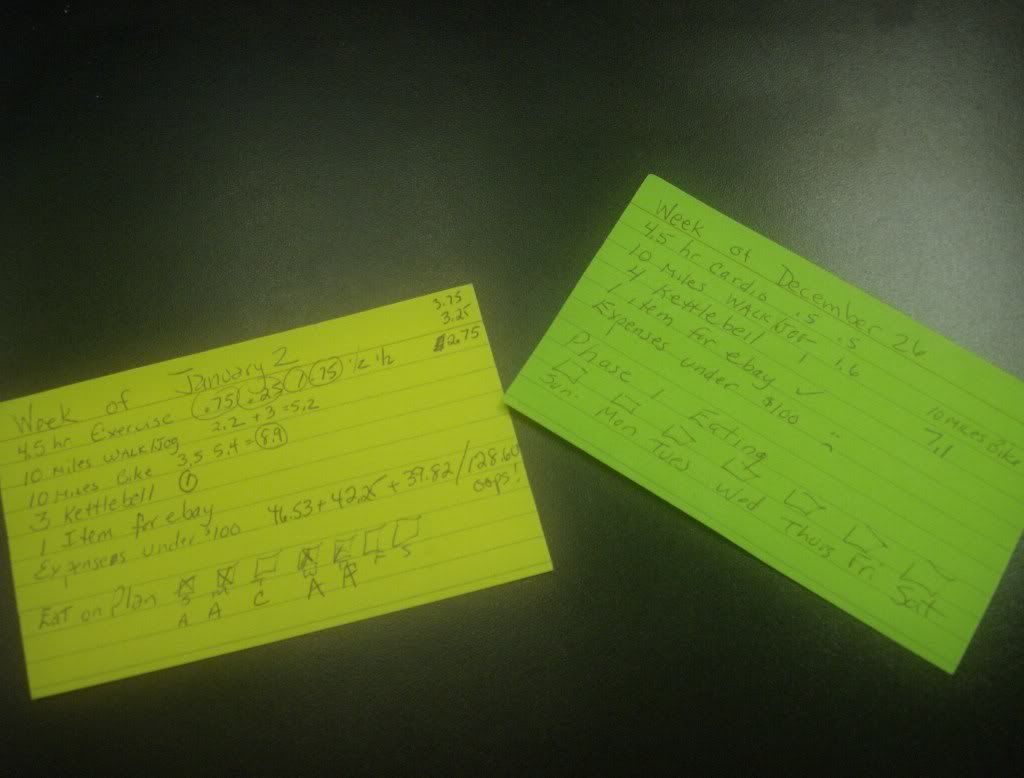 3.75
3.25
2.75
Week of January 2
4.5 hr Exercise .75 .25 1 .75 1/2 1/2
10 Miles WALK/Jog 2.2 + 3 = 5.2
10 Miles Bike 3.5 5.4 = 8.9
3 Kettlebell 1
1 Item for ebay
Expenses under $100 46.53 + 42.25 + 39.82 / 128.60
oops!
Eat on Plan
S M T W F S
A A C A A
Week of December 26
4.5 hr Cardio .5 .5
10 Miles WALK/JOG 1.6
4 Kettlebell 1
1 item for ebay ✓
Expenses under $100
10 Miles Bike
7.1
Phase 1 Eating
Sun. Mon Tues Wed Thurs Fri. Sat